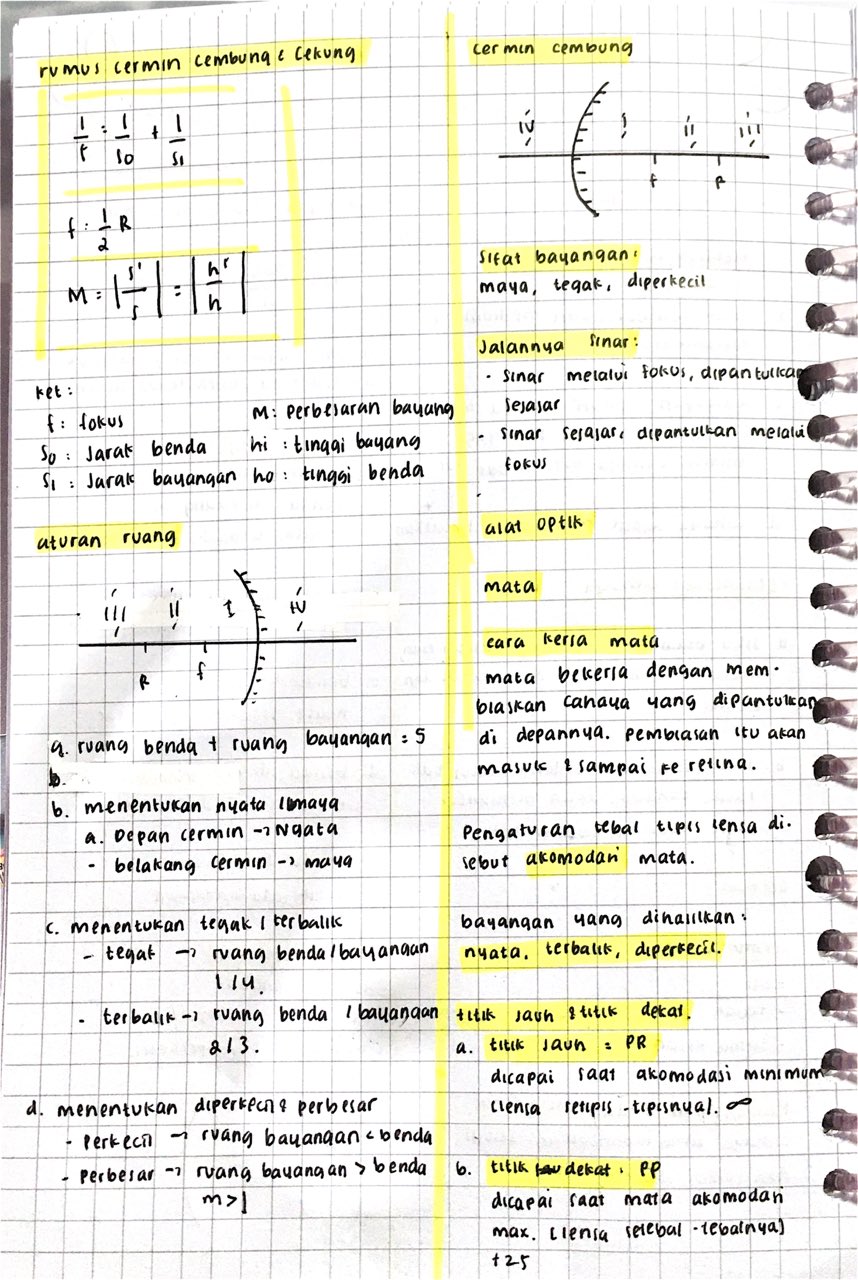 rumus cermin cembung & cekung
1/f = 1/so + 1/s1
f : 1/2 R
M = |s'/s| = |h'/h|
ket :
f : fokus
M : perbesaran bayang
So : Jarak benda
hi : tinggi bayang
S1 : Jarak bayangan
ho : tinggi benda
aturan ruang
III II I IV
R f
a. ruang benda + ruang bayangan = 5
b.
b. menentukan nyata / maya
a. Depan cermin → Nyata
- belakang cermin → maya
c. menentukan tegak / terbalik
- tegak → ruang benda / bayangan
1/4.
- terbalik → ruang benda / bayangan
2/3.
d. menentukan diperkecil & perbesar
- Perkecil → ruang bayangan < benda
- Perbesar → ruang bayangan > benda
m > 1
cermin cembung
IV I II III
f R
Sifat bayangan :
maya, tegak, diperkecil
Jalannya Sinar :
- Sinar melalui fokus, dipantulkan
sejajar
- Sinar sejajar, dipantulkan melalui
fokus
alat optik
mata
cara kerja mata
mata bekerja dengan mem-
biaskan cahaya yang dipantulkan
di depannya. pembiasan itu akan
masuk & sampai ke retina.
Pengaturan tebal tipis lensa di-
sebut akomodasi mata.
bayangan yang dihasilkan :
nyata, terbalik, diperkecil.
titik jauh & titik dekat.
a. titik jauh = PR
dicapai saat akomodasi minimum
(lensa setipis-tipisnya). ∞
b. titik dekat : PP
dicapai saat mata akomodasi
max. (lensa setebal-tebalnya)
+25